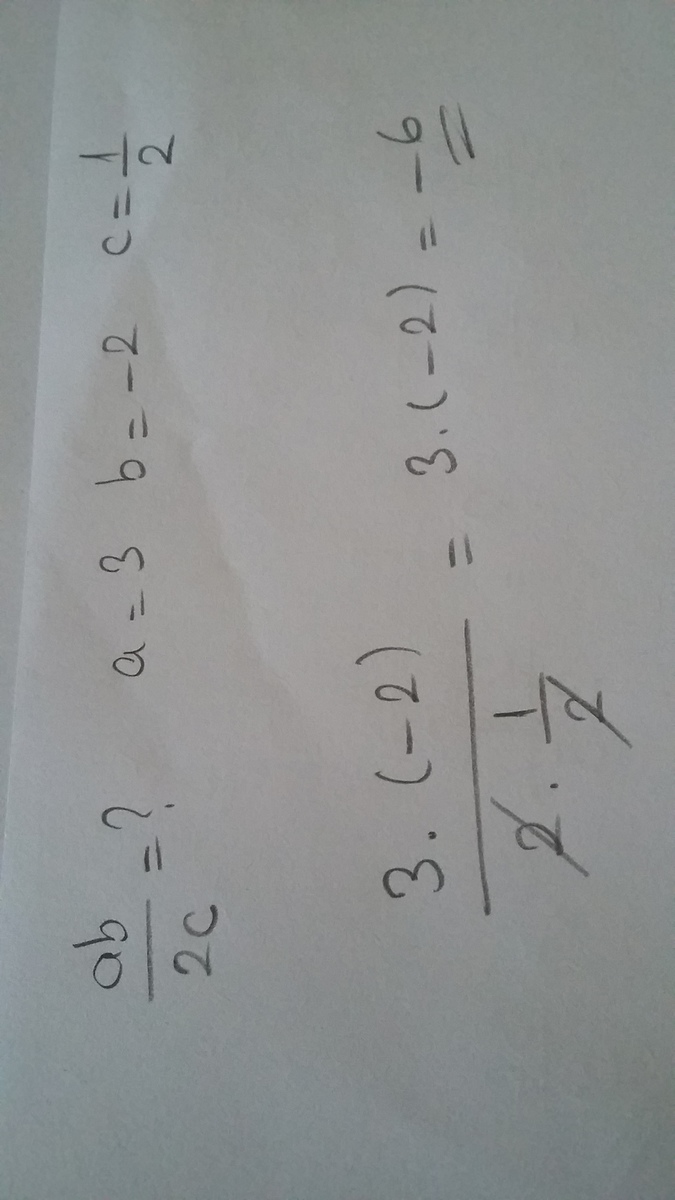 ab/2c = ? a = 3 b = -2 c = 1/2
3 . (-2) / 2 . 1/2 = 3 . (-2) = -6